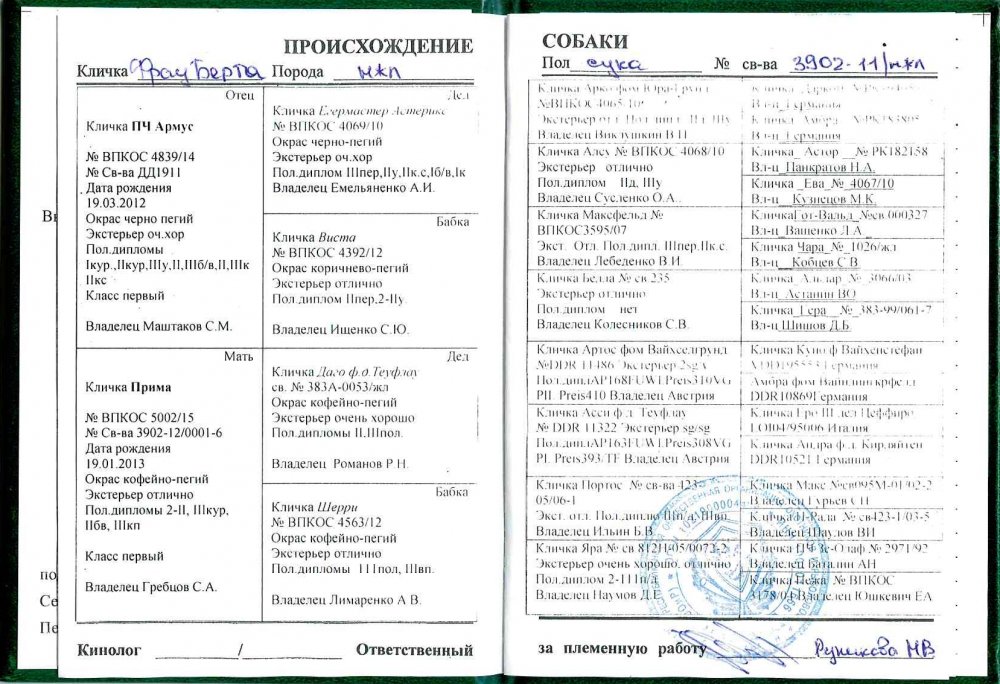 ПРОИСХОЖДЕНИЕ
Кличка Фрау Берта Порода нжп
Отец
Кличка ПЧ Армус
№ ВПКОС 4839/14
№ Св-ва ДД1911
Дата рождения
19.03.2012
Окрас черно пегий
Экстерьер оч.хор
Пол.дипломы
Iкур.,IIкур,IIIу,II,IIIб/в,II,IIIк
IIкс
Класс первый
Владелец Маштаков С.М.
Мать
Кличка Прима
№ ВПКОС 5002/15
№ Св-ва 3902-12/0001-6
Дата рождения
19.01.2013
Окрас кофейно-пегий
Экстерьер отлично
Пол.дипломы 2-II, IIIкур,
IIбв, IIIкп
Класс первый
Владелец Гребцов С.А.
Дед
Кличка Егермастер Астерикс
№ ВПКОС 4069/10
Окрас черно-пегий
Экстерьер оч.хор
Пол.диплом IIIпер,IIу,IIк.с,Iб/в,Iк
Владелец Емельяненко А.И.
Бабка
Кличка Виста
№ ВПКОС 4392/12
Окрас коричнево-пегий
Экстерьер отлично
Пол.диплом IIпер,2-IIу
Владелец Ищенко С.Ю.
Дед
Кличка Даго ф.д.Теуфлау
св. № 383А-0053/жл
Окрас кофейно-пегий
Экстерьер очень хорошо
Пол.дипломы II,IIIпол.
Владелец Романов Р Н.
Бабка
Кличка Шерри
№ ВПКОС 4563/12
Окрас кофейно-пегий
Экстерьер отлично
Пол.дипломы 111пол, IIIвп.
Владелец Лимаренко А В.
Кинолог / Ответственный
СОБАКИ
Пол сука № св-ва 3902-11/нжп
Кличка
№ВПКОС 4065/10
Экстерьер
Владелец Виклушкин В П
Кличка Алсу № ВПКОС 4068/10
Экстерьер отлично
Пол.диплом IIд, IIIу
Владелец Сусленко О.А..
Кличка Максфельд №
ВПКОС3595/07
Экст. Отл. Пол.дипл. IIIпер.IIк.с.
Владелец Лебеденко В.И.
Кличка Белла № св 235
Экстерьер отлично
Пол.диплом нет
Владелец Колесников С.В.
Кличка Артос фом Вайхселгрунд
№DDR 11486 Экстерьер 2sg v
Владелец Австрия
Кличка Асси ф.д. Техфлау
№ DDR 11322 Экстерьер sg/sg
Владелец Австрия
Кличка Портос № св-ва 423-
05/06-1
Экст. отл. Пол.диплю
Владелец Ильин Б.В.
Кличка Яра № св 812Н-05/0072-2
Экстерьер очень хорошо. отлично
Пол.диплом 2-111п/д
Владелец Наумов Д.Е
Кличка
Вл-ц Германия
Кличка Амбра №РК183805
Вл-ц Германия
Кличка Астор № РК182158
Вл-ц Панкратов Н.А.
Кличка Ева № 4067/10
Вл-ц Кузнецов М.К.
КличкаГот-Вальд №св 000327
Вл-ц Ващенко Л.А
Кличка Чара № 1026/жл
Вл-ц Кобцев С.В
Кличка Альдар № 3066/03
Вл-ц Астанин ВО
Кличка Гера № 383-99/061-7
Вл-ц Шишов Д.Б.
Кличка Куно ф Вайхенстефан
Германия
Амбра фом
DDR10869Германия
Кличка Еро III дел Цеффиро
LOI04/95006 Италия
Кличка Андра ф.д. Кирляйтен
DDR10521 Германия
Кличка Макс №св095М-01/02-2
Владелец Гурьев СП
Кличка № св423-1/03-5
Владелец Шаулов ВИ
Кличка ПЧ Зе-Олаф № 2971/92
Владелец Баталин АН
Кличка Пежа № ВПКОС
3178/04 Владелец Юшкевич ЕА
за племенную работу